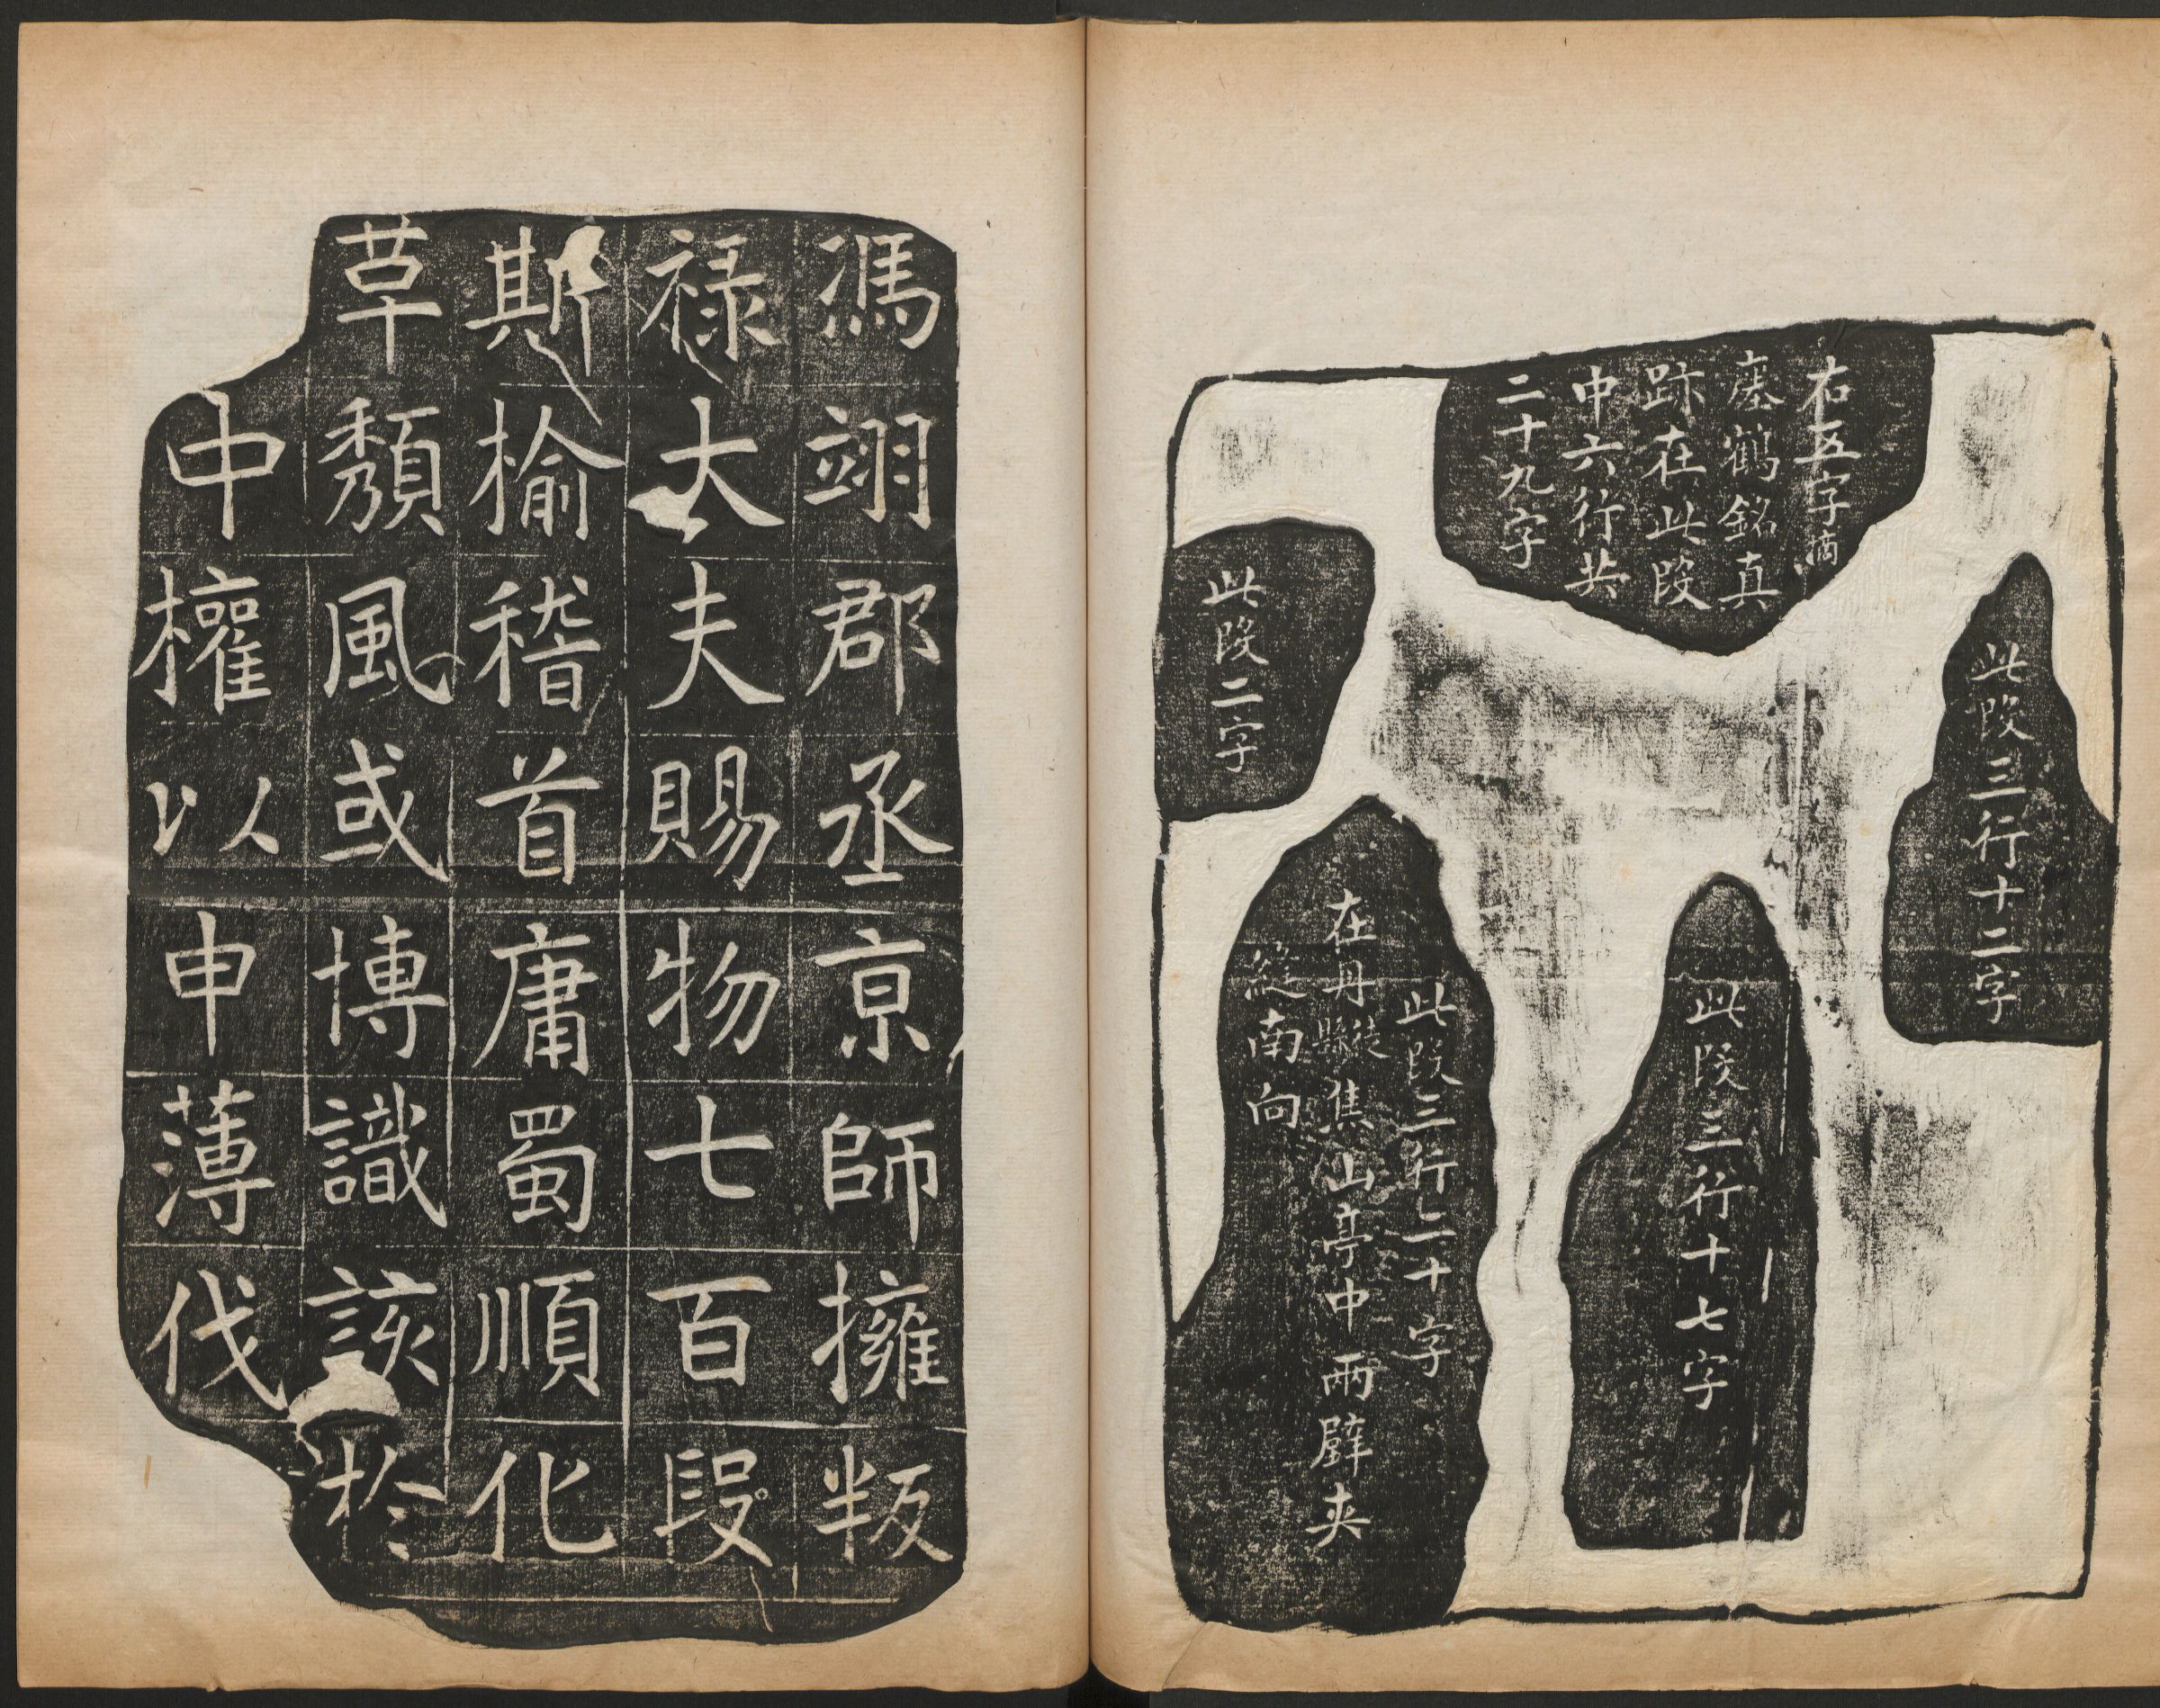 此段三行十二字
右五字摘
瘞鶴銘真
跡在此段
中六行共
二十九字
此段三行十七字
此段三行二十字
在丹徒縣焦山亭中兩壁夾
縫南向
此段二字
馮翊郡丞京師擁叛
祿大夫賜物七百段
斯榆稽首庸蜀順化
草頹風或博識該於
中權以申薄伐